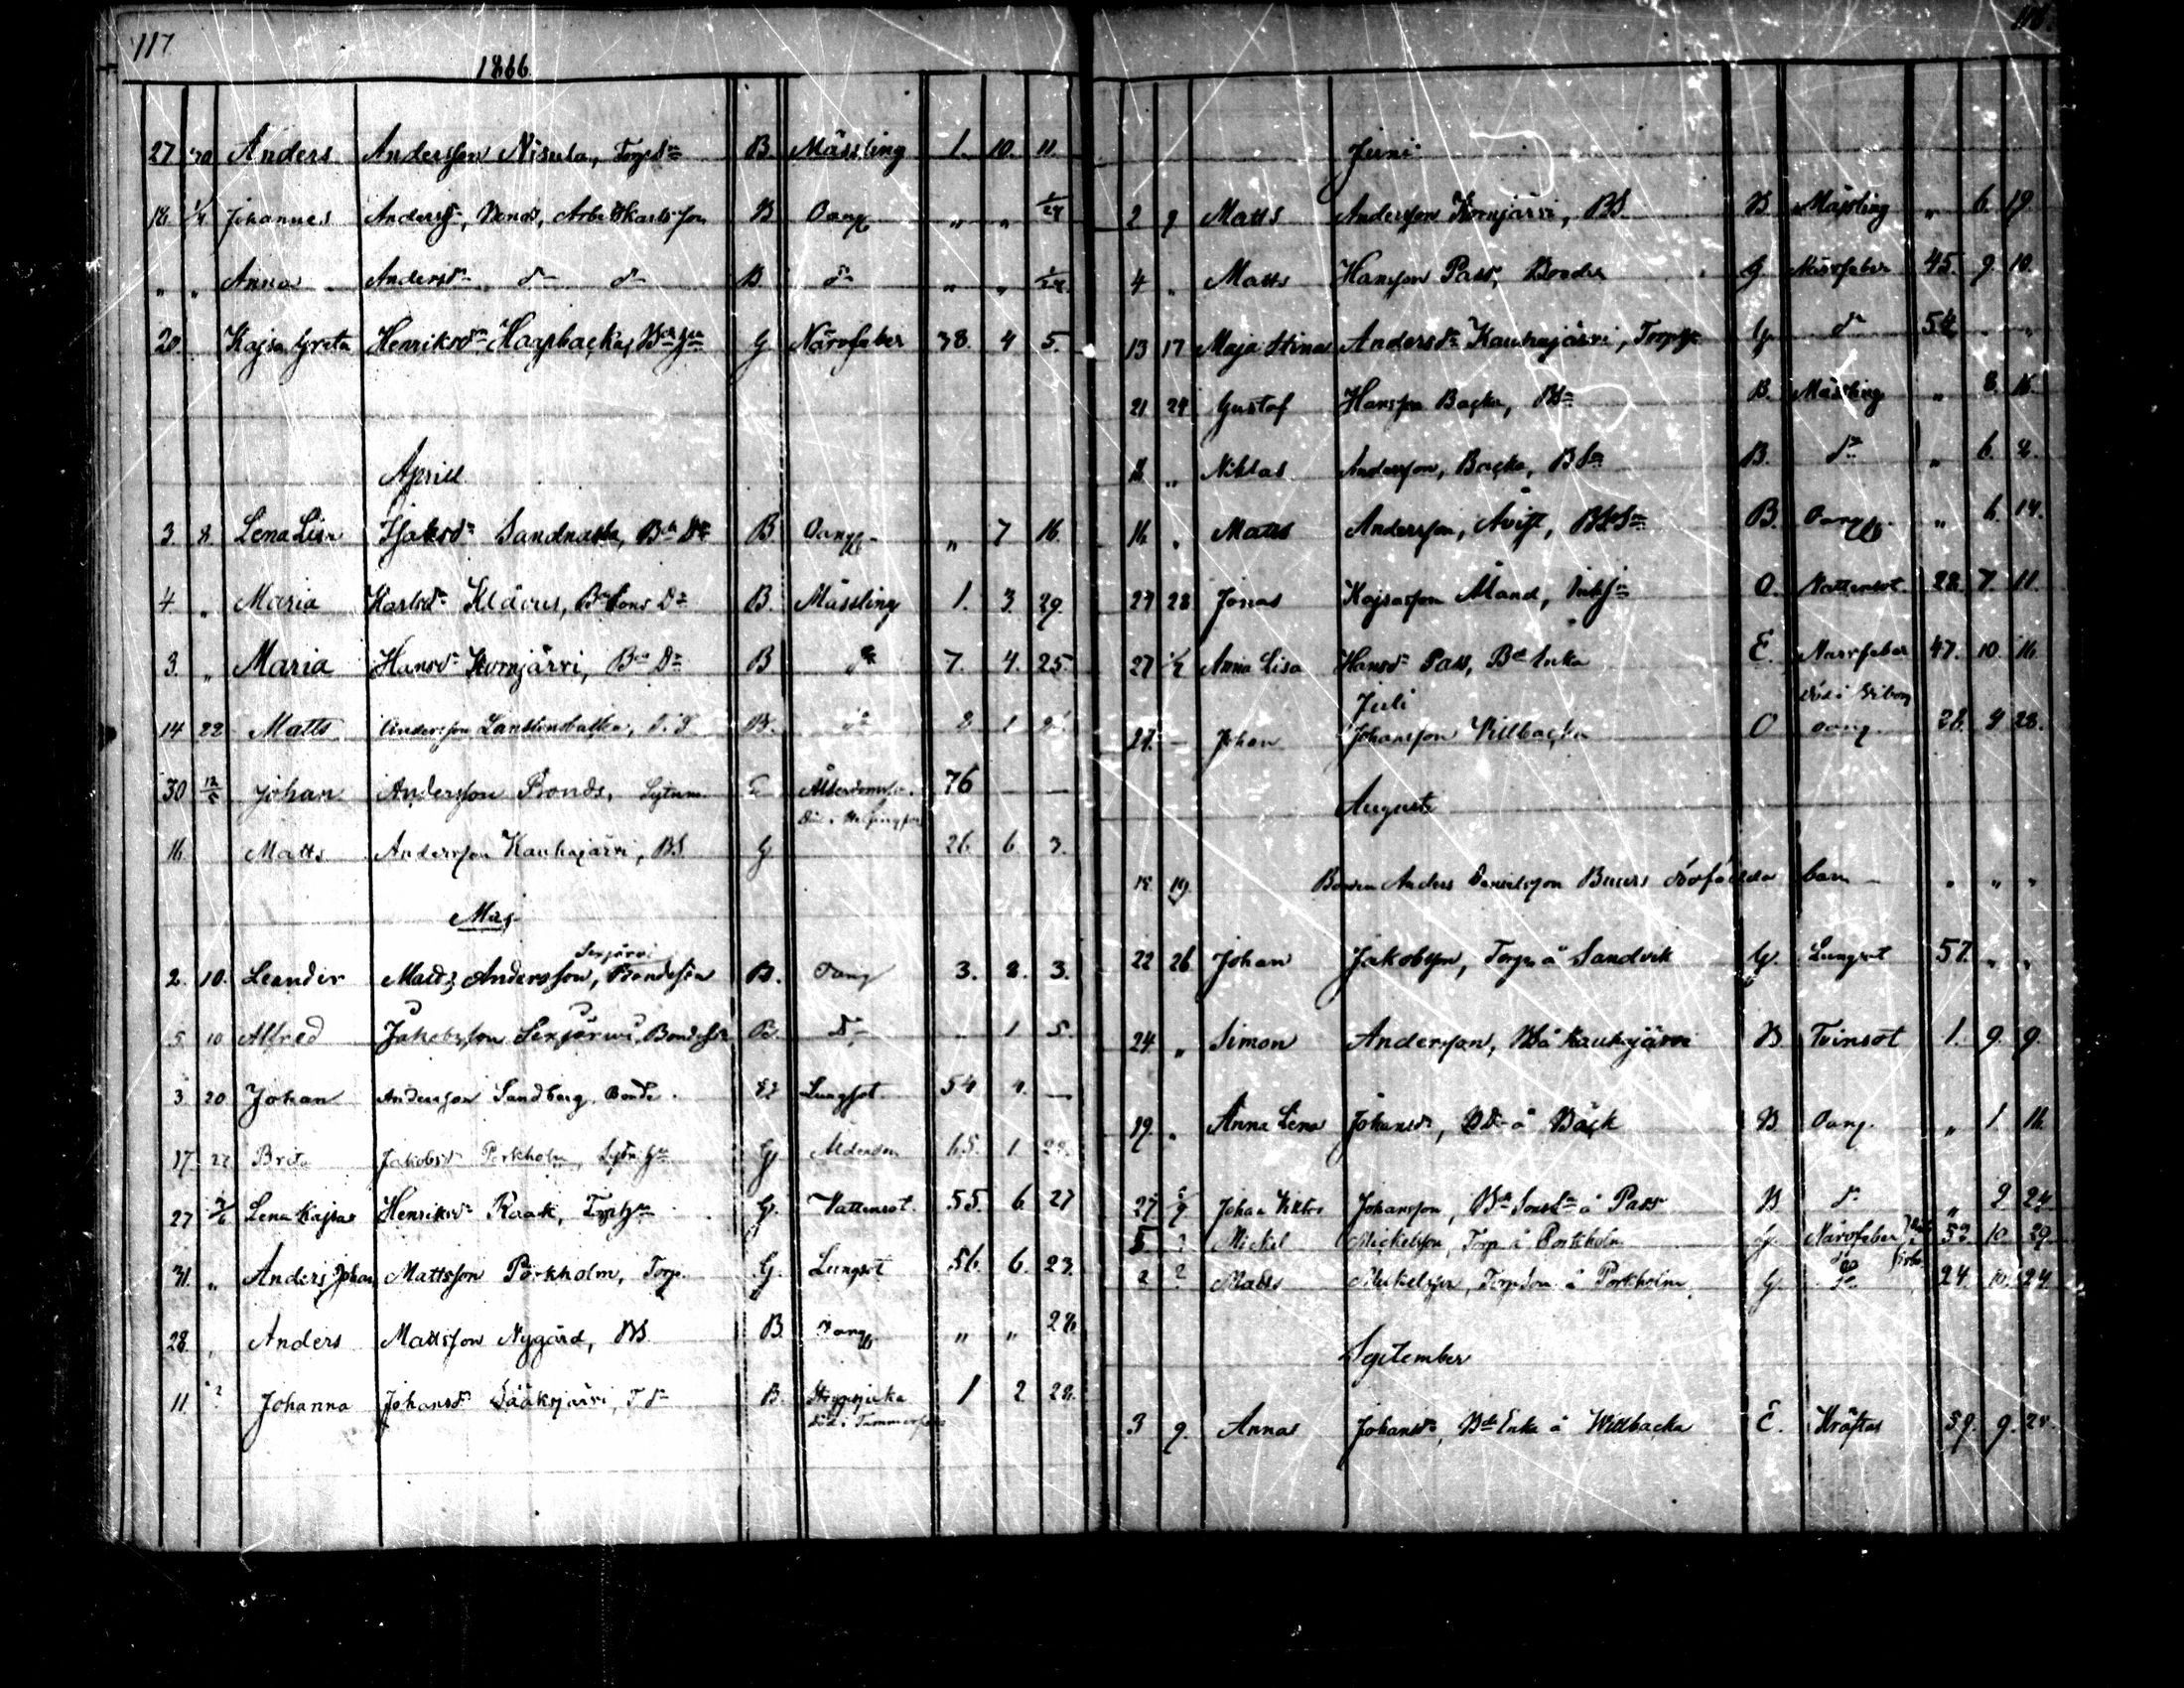 117
1866
27 Anders Andersson Nisula, Torps. B. Mässling 1. 10. 11.
18. 1/4 Johannes Anderss., Bonds, Arbetskarls son B Oang „ „ 1/24
„ „ Anna Andersdr dr dr B dr „ „ 1/24
20. Kajsa Greta Henriksdr Hagsbacka, G Närvfeber 38. 4 5.
April
3. 8. Lena Lisa Isaksdr Sandnabba, Be Dr B. Oang „ 7 16.
4 „ Maria Karlsdr Klavus, Be Sons Dr B. Mässling 1. 3. 29.
3. „ Maria Hansdr Kornjärvi, Be Dr B dr 7. 4. 25.
14 22 Matts Andersson B. dr 2. 1
30 12/5 Johan Andersson Bonds, Sytnm. G Ålderdomsv. 76 —
Död i Helsingfors
16. Matts Andersson Kauhajärvi, BS. G 26. 6. 3.
Maj
Sexjärvi
2. 10. Leander Matts Andersson, Bondeson B. Oang 3. 8. 3.
5 10 Alfred Jakobsson Sexjärvi, Bondes. B. D. 1 5.
3 20 Johan Andersson Sandberg, Bonde. Lungsot. 54 4. —
17. 22 Brita Jakobsdr Porkholm, G Ålderdom 65. 1
27 3/6 Lena Kajsa Henriksdr Kaak, G. Vattensot. 55. 6. 27
31. „ Anders Johan Mattsson Porkholm, Torp. G. Lungsot 56. 6. 23.
28. „ Anders Mattsson Nygård, BS. B. Oang „ „ 28.
11. ? Johanna Johansdr Sääksjärvi, T dr B. Strypsjuka 1 2 28.
död i Tammerfors
Juni
2 9 Matts Andersson Kornjärvi, BS. B Mässling „ 6. 19.
4 „ Matts Hansson Pass, Bonde G. Närvfeber 45. 9. 10.
13 17 Maja Stina Andersdr Kauhajärvi, G. dr 54 „ „
21 24 Gustaf Hansson Backa, BS. B. Mässling „ 8. 16.
18 „ Niklas Andersson, Backa, BS. B. dr „ 6.
16 „ Matts Andersson, Åvist, B. Oang „ 6. 14.
27 28 Jonas Kajsasson Åland, O. Vattensot. 28. 7. 11.
27 1/7 Anna Lisa Hansdr Pass, Be Enka E. Närvfeber 47. 10. 16.
Juli
död i Viborg
24. — Johan Johansson Villbacka O oang. 28. 9 28.
Augusti
18. 19 Bonden Anders Danielsson Buurs dödfödda barn — „ „ „
22 26 Johan Jakobsson, Torp. å Sandvik G. Lungsot 57. „ „
24. „ Simon Andersson, BS å Kauhajärvi B. Tvinsot 1. 9. 9.
19. „ Anna Lena Johansdr, BD å Bäck B Oang. „ 1. 16.
27 2/9 Johan Viktor Johansson, Be Sons å Pass B dr „ 2 24.
5. ? Mickel Mickelsson, Torp. å Porkholm G. Närvfeber 52. 10. 29.
2 ? Matts Mickelsson, Torp. Son å Porkholm G. 24. 10. 24.
September
3 9. Anna Johansdr, Be Enka å Willbacka E. Kräftas 59. 9. 28.